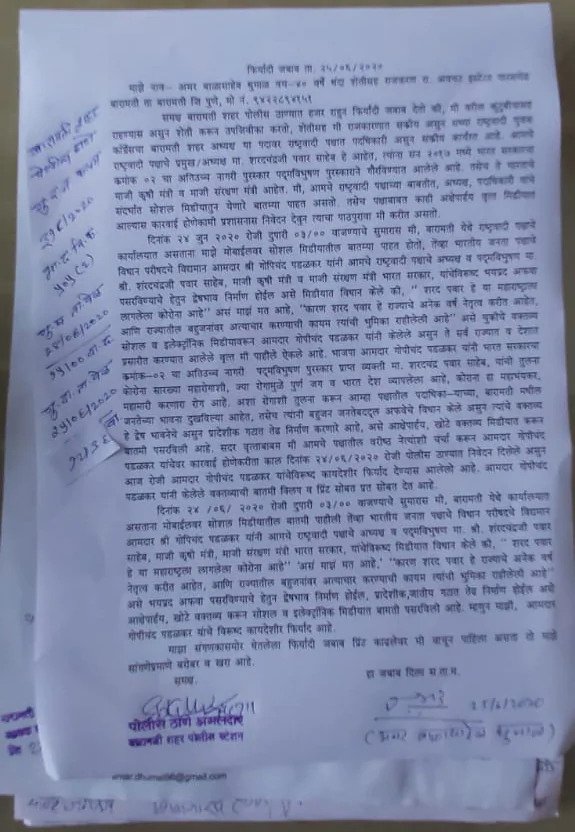 फिर्यादी जबाब ता. २५/०६/२०२०
माझे नाव- अमर बाळासाहेब धुमाळ वय-४० वर्षे धंदा शेतीसह राजकारण रा. अवचट इस्टेट
बारामती ता बारामती जि पुणे, मो नं. ९४२२८९४१५१
समक्ष बारामती शहर पोलीस ठाण्यात हजर राहुन फिर्यादी जबाब देतो की, मी वरील कुटुंबीयासह
राहण्यास असुन शेती करून उपजिवीका करतो, शेतीसह मी राजकारणात सक्रीय असुन सध्या राष्ट्रवादी युवक
काँग्रेसचा बारामती शहर अध्यक्ष या पदावर राष्ट्रवादी पक्षात पदाधिकारी असुन सक्रीय कार्यरत आहे. आमचे
राष्ट्रवादी पक्षाचे प्रमुख/अध्यक्ष मा. शरदचंद्रजी पवार साहेब हे आहेत, त्यांना सन २०१७ मध्ये भारत सरकारचा
क्रमांक ०२ चा अतिउच्च नागरी पुरस्कार पदमविभुषण पुरस्काराने गौरविण्यात आलेले आहे. तसेच ते भारताचे
माजी कृषी मंत्री व माजी संरक्षण मंत्री आहेत. मी, आमचे राष्ट्रवादी पक्षाच्या बाबतीत, अध्यक्ष, पदाधिकारी यांचे
संदर्भात सोशल मिडीयातुन येणारे बातम्या पाहत असतो. तसेच पक्षाबाबत काही आक्षेपार्ह वृत्त मिडीयात
आल्यास कारवाई होणेकामी प्रशासनास निवेदन देवुन त्याचा पाठपुरावा मी करीत असतो.
दिनांक २४ जुन २०२० रोजी दुपारी ०३/०० वाजण्याचे सुमारास मी, बारामती येथे राष्ट्रवादी पक्षाचे
कार्यालयात असताना माझे मोबाईलवर सोशल मिडीयातील बातम्या पाहत होतो, तेव्हा भारतीय जनता पक्षाचे
विधान परीषदचे विद्यमान आमदार श्री गोपिचंद पडळकर यांनी आमचे राष्ट्रवादी पक्षाचे अध्यक्ष व पदमविभुषण मा.
श्री. शरदचंद्रजी पवार साहेब, माजी कृषी मंत्री व माजी संरक्षण मंत्री भारत सरकार, यांचेविरुध्द भयप्रद अफवा
पसरविण्याचे हेतुन द्वेषभाव निर्माण होईल असे मिडीयात विधान केले की, " शरद पवार हे या महाराष्ट्राला
लागलेला कोरोना आहे" असं माझं मत आहे, "कारण शरद पवार हे राज्याचे अनेक वर्ष नेतृत्व करीत आहेत,
आणि राज्यातील बहुजनांवर अत्याचार करण्याची कायम त्यांची भुमिका राहीलेली आहे" असे चुकीचे वक्तव्य
सोशल व इलेक्ट्रॉनिक मिडीयावरून आमदार गोपीचंद पडळकर यांनी केलेले असुन ते सर्व राज्यात व देशात
प्रसारीत करण्यात आलेले वृत्त मी पाहीले ऐकले आहे. भाजपा आमदार गोपीचंद पडळकर यांनी भारत सरकारचा
क्रमांक-०२ चा अतिउच्च नागरी पदमविभुषण पुरस्कार प्राप्त व्यक्ती मा. शरदचंद्रजी पवार साहेब, यांची तुलना
कोरोना सारख्या महारोगाशी, ज्या रोगामुळे पुर्ण जग व भारत देश व्यापलेला आहे, कोरोना हा महाभयंकर,
महामारी करणारा रोग आहे. अशा रोगाशी तुलना करून आम्हा पक्षातील पदाधिका-याच्या, बारामती मधील
जनतेच्या भावना दुखविल्या आहेत, तसेच त्यांनी बहुजन जनतेबद्दल अफवेचे विधान केले असुन त्याचे वक्तव्य
हे द्वेष भावनेचे असुन प्रादेशीक गटात तेढ निर्माण करणारे आहे, असे आक्षेपार्ह, खोटे वक्तव्य मिडीयात करून
बातमी पसरवली आहे. सदर वृत्ताबाबम मी आमचे पक्षातील वरीष्ठ नेत्यांशी चर्चा करून आमदार गोपीचंद
पडळकर यांचेवर कारवाई होणेकरीता काल दिनांक २४/०६/२०२० रोजी पोलीस ठाण्यात निवेदन दिलेले असुन
आज रोजी आमदार गोपीचंद पडळकर यांचे विरूध्द कायदेशीर फिर्याद देण्यास आलेलो आहे. आमदार गोपीचंद
पडळकर यांनी केलेले वक्तव्याची बातमी क्लिप व प्रिंट सोबत प्रत सोबत देत आहे.
दिनांक २४ /०६/ २०२० रोजी दुपारी ०३/०० वाजण्याचे सुमारास मी, बारामती येथे कार्यालयात
असताना मोबाईलवर सोशल मिडीयातील बातमी पाहीली तेव्हा भारतीय जनता पक्षाचे विधान परीषदचे विद्यमान
आमदार श्री गोपिचंद पडळकर यांनी आमचे राष्ट्रवादी पक्षाचे अध्यक्ष व पदमविभुषण मा. श्री. शरदचंद्रजी पवार
साहेब, माजी कृषी मंत्री, माजी संरक्षण मंत्री भारत सरकार, यांचेविरुध्द मिडीयात विधान केले की, " शरद पवार
हे या महाराष्ट्रला लागलेला कोरोना आहे" 'असं माझं मत आहे,' "कारण शरद पवार हे राज्याचे अनेक वर्ष
नेतृत्व करीत आहेत, आणि राज्यातील बहुजनांवर अत्याचार करण्याची कायम त्यांची भुमिका राहीलेली आहे"
असे भयप्रद अफवा पसरविण्याचे हेतुन द्वेषभाव निर्माण होईल, प्रादेशीक,जातीय गटात तेढ निर्माण होईल असे
आक्षेपार्ह, खोटे वक्तव्य करून सोशल व इलेक्ट्रॉनिक मिडीयात बातमी पसरवली आहे. म्हणुन माझी, आमदार
गोपीचंद पडळकर यांचे विरूध्द कायदेशीर फिर्याद आहे.
माझा संगणकासमोर घेतलेला फिर्यादी जबाब प्रिंट काढलेवर मी वाचुन पाहिला असता तो माझे
सांगणेप्रमाणे बरोबर व खरा आहे.
समक्ष, हा जबाब दिला स.ता.म.
25/6/2020
पोलीस ठाणे अंमलदार
बारामती शहर पोलीस स्टेशन
amar.dhumal66@gmail.com